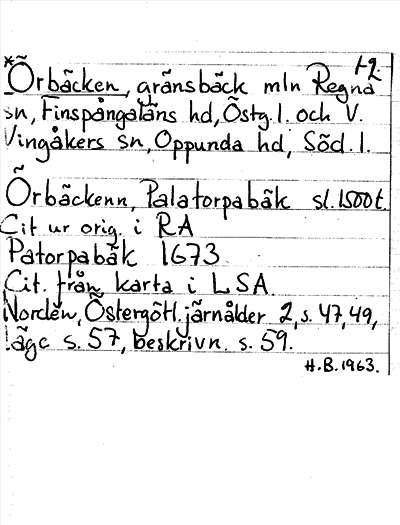 1-2
*Örbäcken, gränsbäck mln Regna
sn, Finspångaläns hd, Östg.l. och V.
Vingåkers sn, Oppunda hd, Söd. l.
Örbäckenn, Palatorpabäk sl. 1500t.
Cit ur orig. i RA
Patorpabäk 1673
Cit. från karta i LSA.
Nordén, Östergötl. järnålder 2, s. 47, 49,
läge s. 57, beskrivn. s. 59.
H.B. 1963.